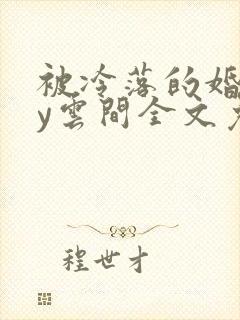 被冷落的婚
y雲間全文
程世才